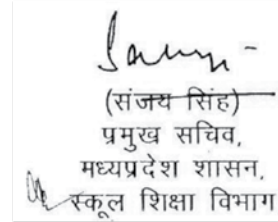 (संजय सिंह)
प्रमुख सचिव,
मध्यप्रदेश शासन,
स्कूल शिक्षा विभाग